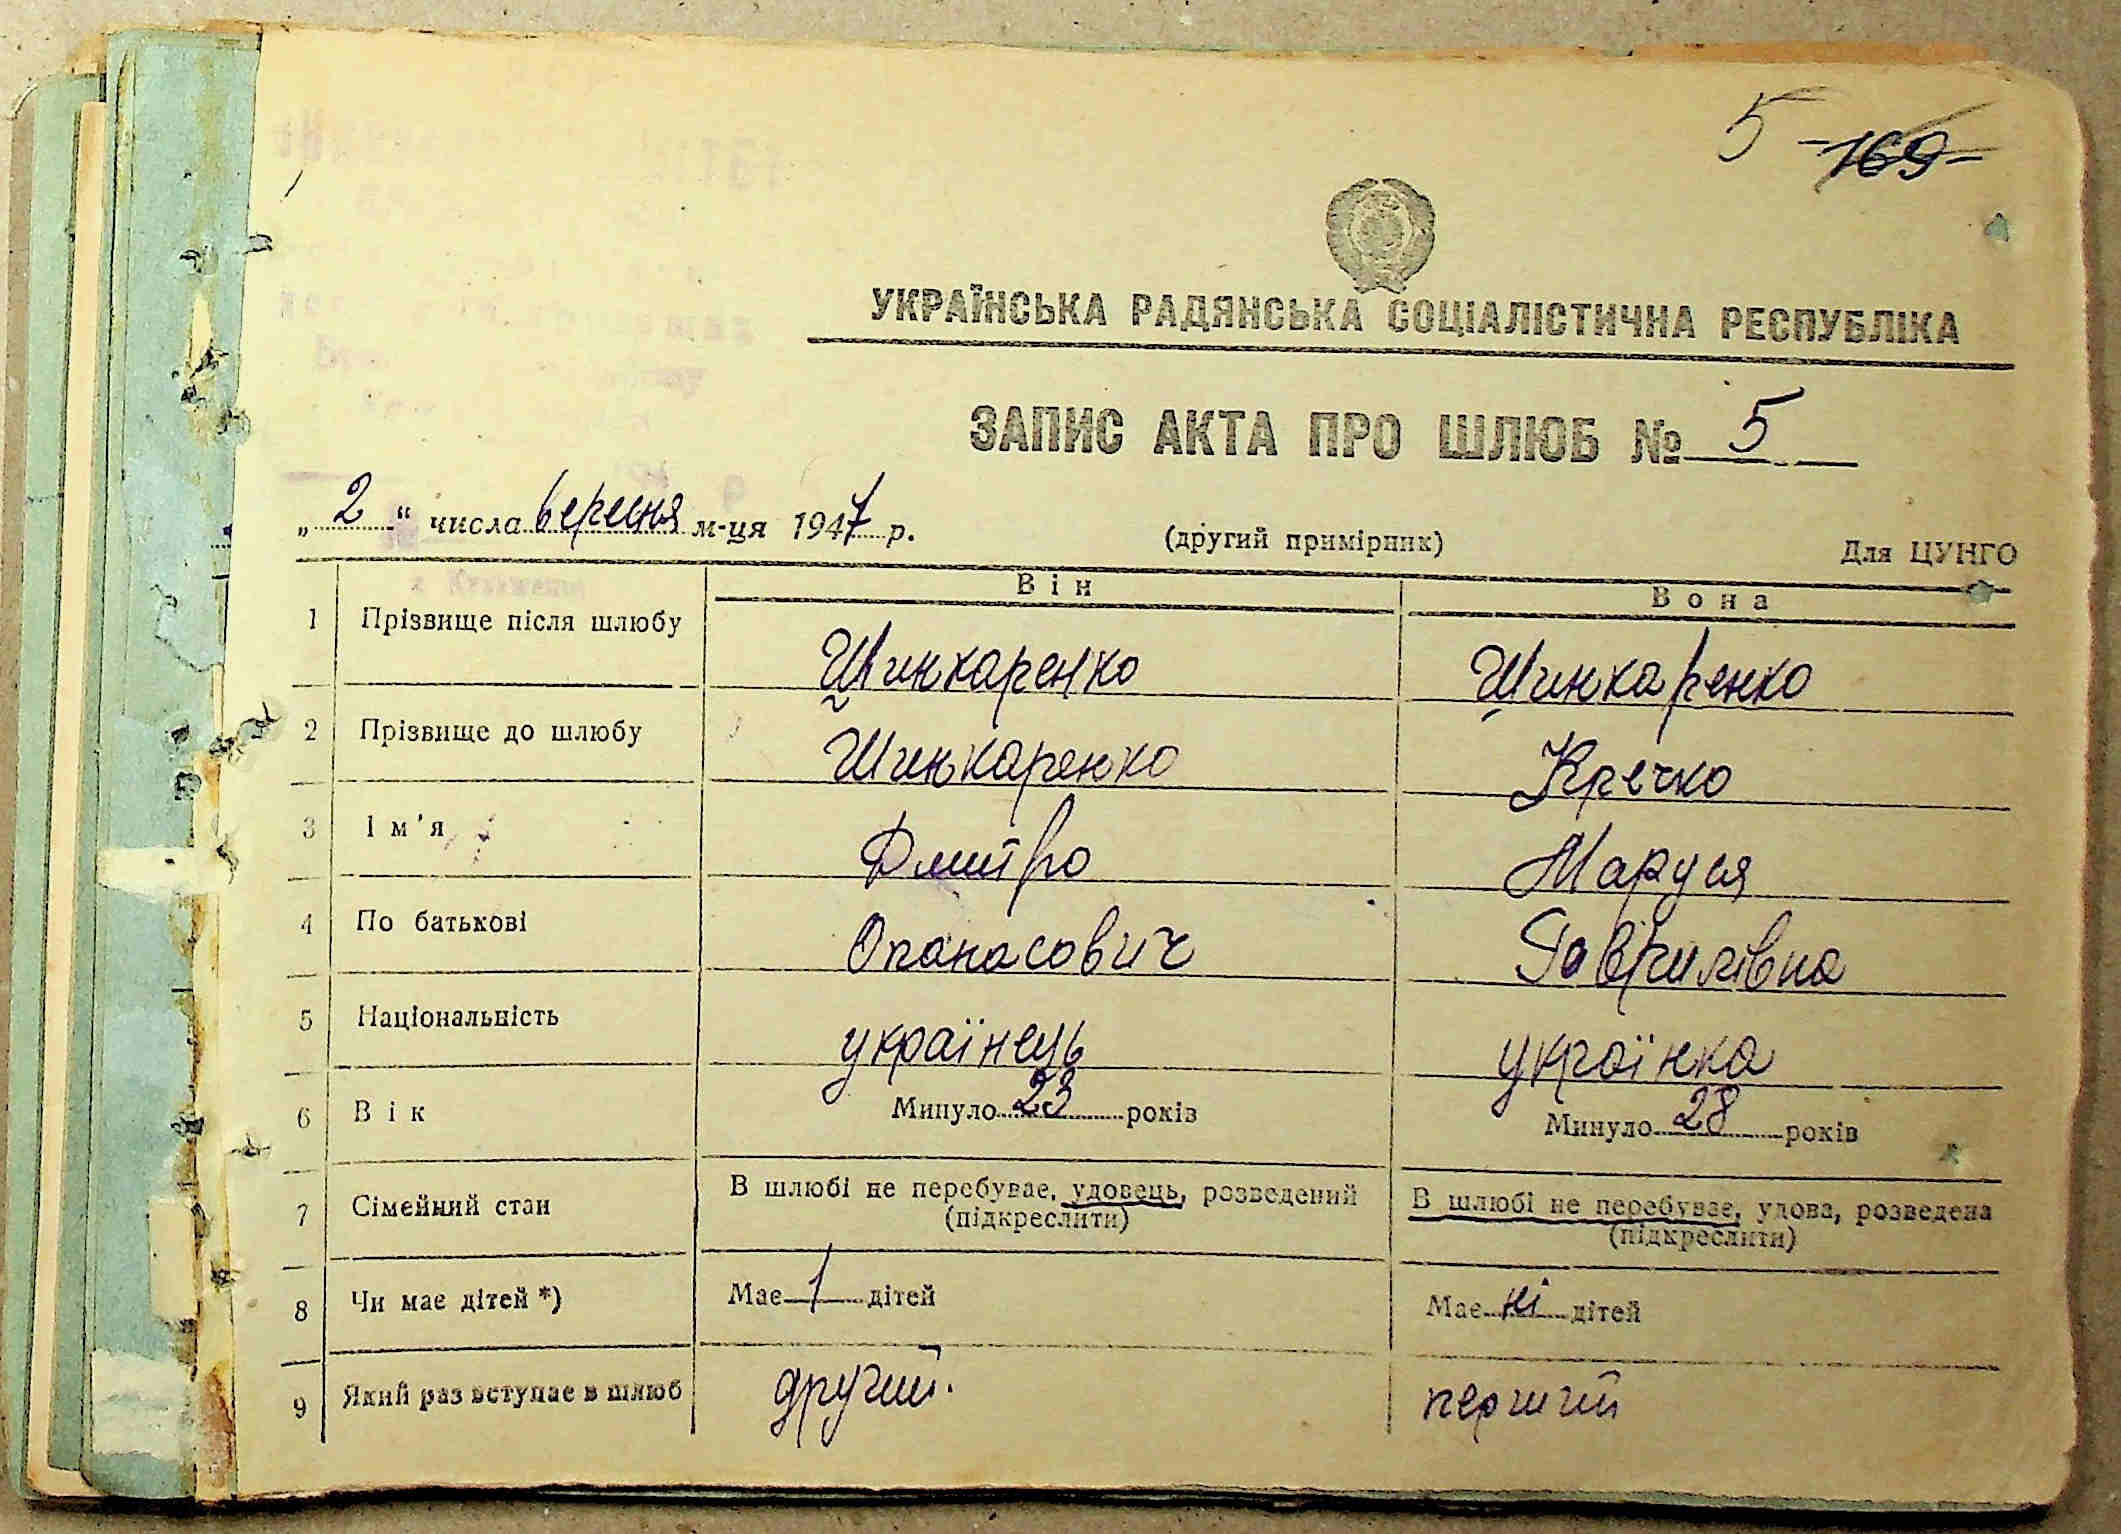 5 -169-
УКРАЇНСЬКА РАДЯНСЬКА СОЦІАЛІСТИЧНА РЕСПУБЛІКА
ЗАПИС АКТА ПРО ШЛЮБ № 5
„2“ числа вересня м-ця 1947 р. (другий примірник) Для ЦУНГО
Він Вона
1 Прізвище після шлюбу Шинкаренко Шинкаренко
2 Прізвище до шлюбу Шинкаренко Кречко
3 Ім'я Дмитро Маруся
4 По батькові Опанасович Гаврилівна
5 Національність українець українка
6 Вік Минуло 23 років Минуло 28 років
7 Сімейний стан В шлюбі не перебуває, удовець, розведений В шлюбі не перебуває, удова, розведена
(підкреслити) (підкреслити)
8 Чи має дітей *) Має 1 дітей Має ні дітей
9 Який раз вступає в шлюб другий. перший